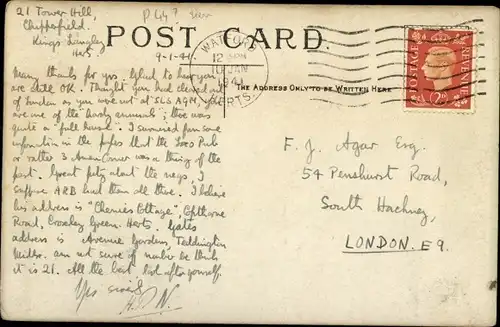 21 Tower Hill,
Chipperfield,
Kings Langley
Herts.
9-1-41
P 44?
POST CARD.
WATFORD
12
10 JAN
1941
HERTS.
THE ADDRESS ONLY TO BE WRITTEN HERE
POSTAGE
REVENUE
Many thanks for yrs. Glad to hear you
are still OK. Thought you had cleared out
of London as you were not at SLS AGM, you
are one of the hardy annuals; there was
quite a "full house". I summoned from some
information in the that the Loco Pub
or rather 3 Amen Corner was a thing of the
past. Great pity about the negs. I
suppose ARB had them all there. I believe
his address is "Chenies Cottage",
Road, Croxley Green. Herts. Yates
address is Avenue Gardens, Teddington
Middx. am not sure of number but think
it is 21. All the best. Look after yourself.
Yrs sincly
F. J. Agar Esq.
54 Penshurst Road,
South Hackney,
LONDON. E9.